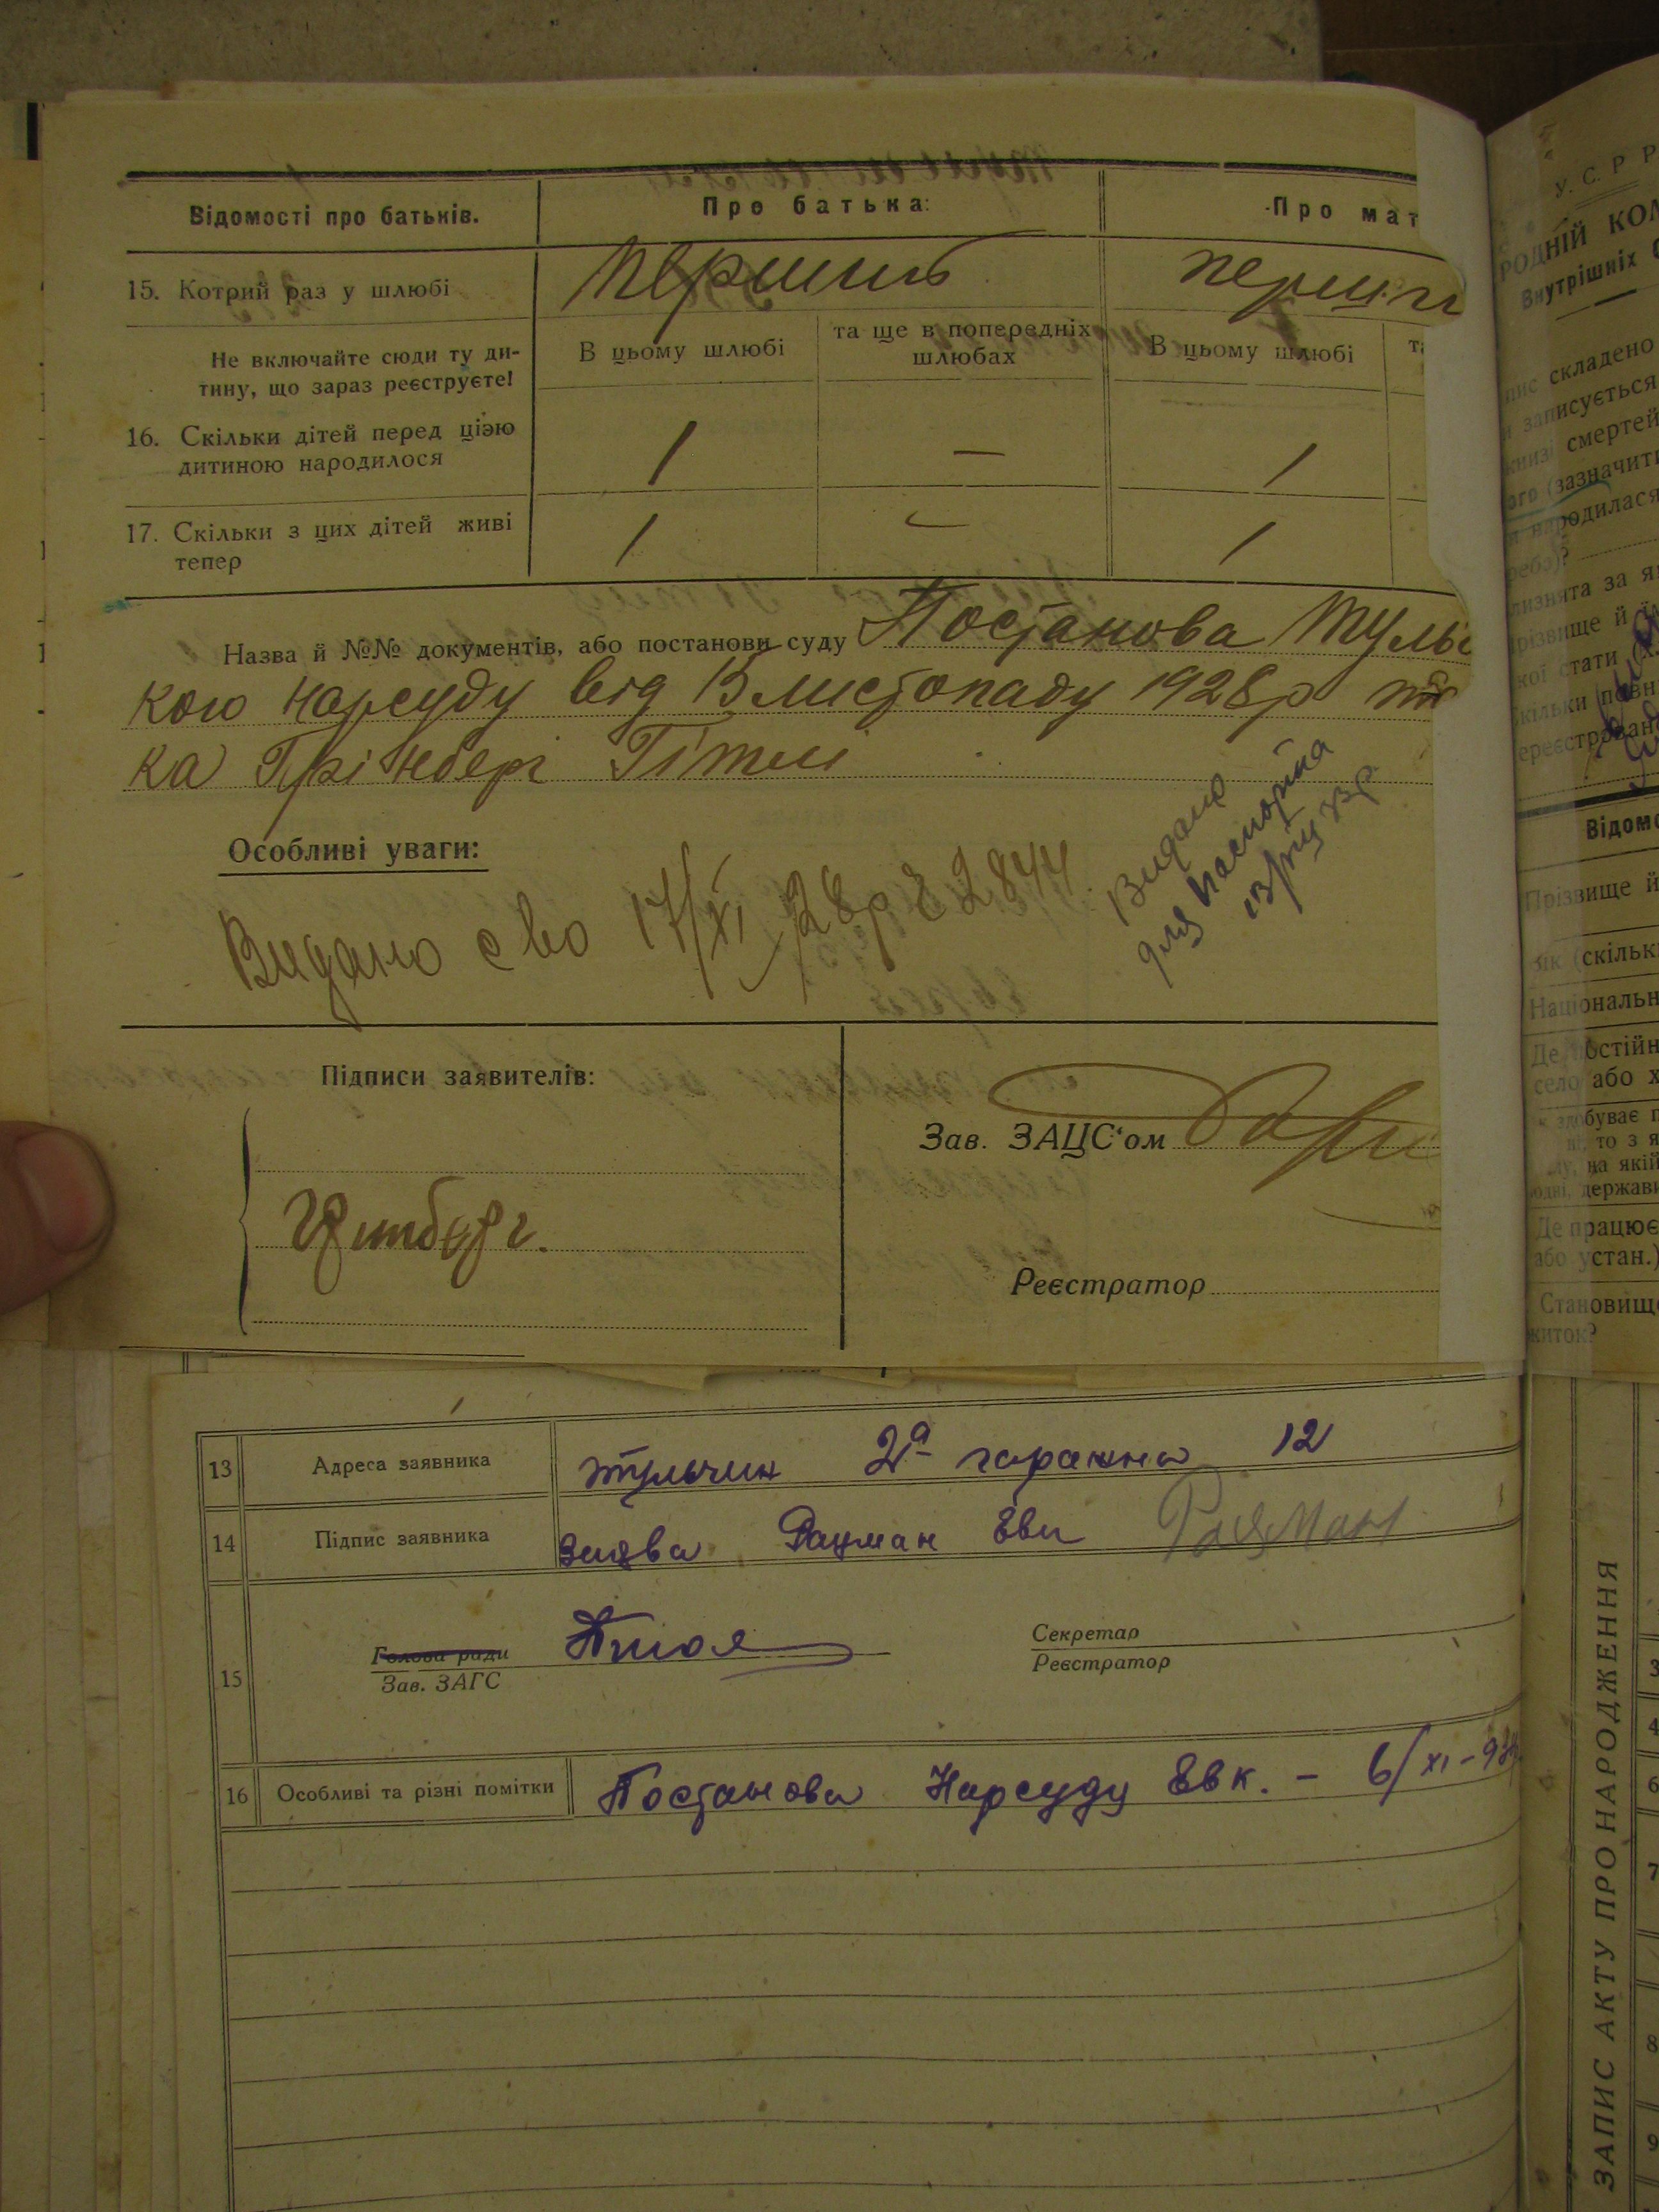 Відомості про батьків.
Про батька:
Про мат
15. Котрий раз у шлюбі
першиб
перши
Не включайте сюди ту ди-
тину, що зараз реєструєте!
В цьому шлюбі
та ще в попередніх
шлюбах
В цьому шлюбі
та
16. Скільки дітей перед цією
дитиною народилося
1 — 1
17. Скільки з цих дітей живі
тепер
1 — 1
Назва й №№ документів, або постанови суду Постанова Тульс
кою нарсуду від 15 листопаду 1928р
ка Грінберг Гітлі
Особливі уваги:
Видано с во 17/XI 28р 2844
Видано
для паспорта
Підписи заявителів:
Гринберг.
Зав. ЗАЦС'ом
Реєстратор
У. С. Р Р
РОДНІЙ КОМ
Внутрішніх С
складено
записується
книзі смертей
ого (зазначити
народилася
ребо)?
изнята за як
різвище й ім
кої стати
кільки повн
ереєстрован
Відомо
Прізвище й
Вік (скільк
Національн
Де постійн
село або х
добуває п
то з я
на якій
держави
Де працює
або устан.)
Становище
житок?
13 Адреса заявника Тульчин 2а гаражна 12
14 Підпис заявника Заява Рацман Еви Рацман
15
Голова ради
Зав. ЗАГС
Секретар
Реєстратор
16 Особливі та різні помітки Постанова Нарсуду Евк. – 6/XI – 93
ЗАПИС АКТУ ПРО НАРОДЖЕННЯ
3
4
6
7
8
9